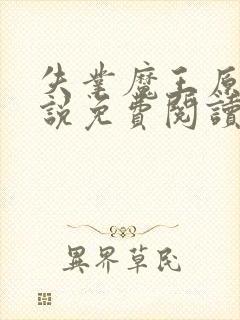 失業魔王原
說免費閱讀
異界草民